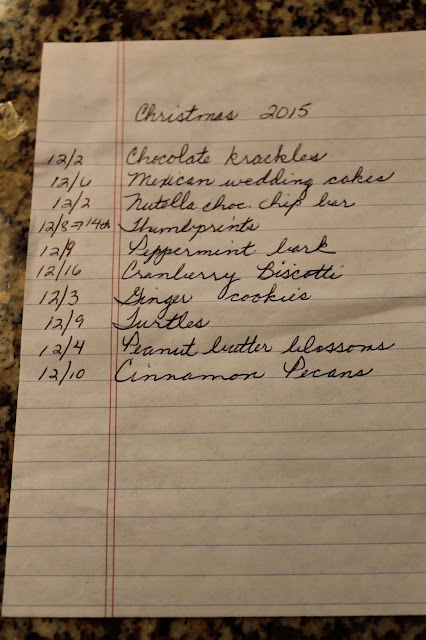 Christmas 2015
12/2 Chocolate krackles
12/6 Mexican wedding cakes
12/2 Nutella choc. chip bar
12/8→14th Thumbprints
12/9 Peppermint bark
12/16 Cranberry Biscotti
12/3 Ginger cookies
12/9 Turtles
12/4 Peanut butter blossoms
12/10 Cinnamon Pecans